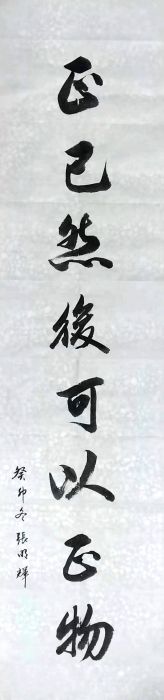 正己然後可以正物
癸卯冬張明輝